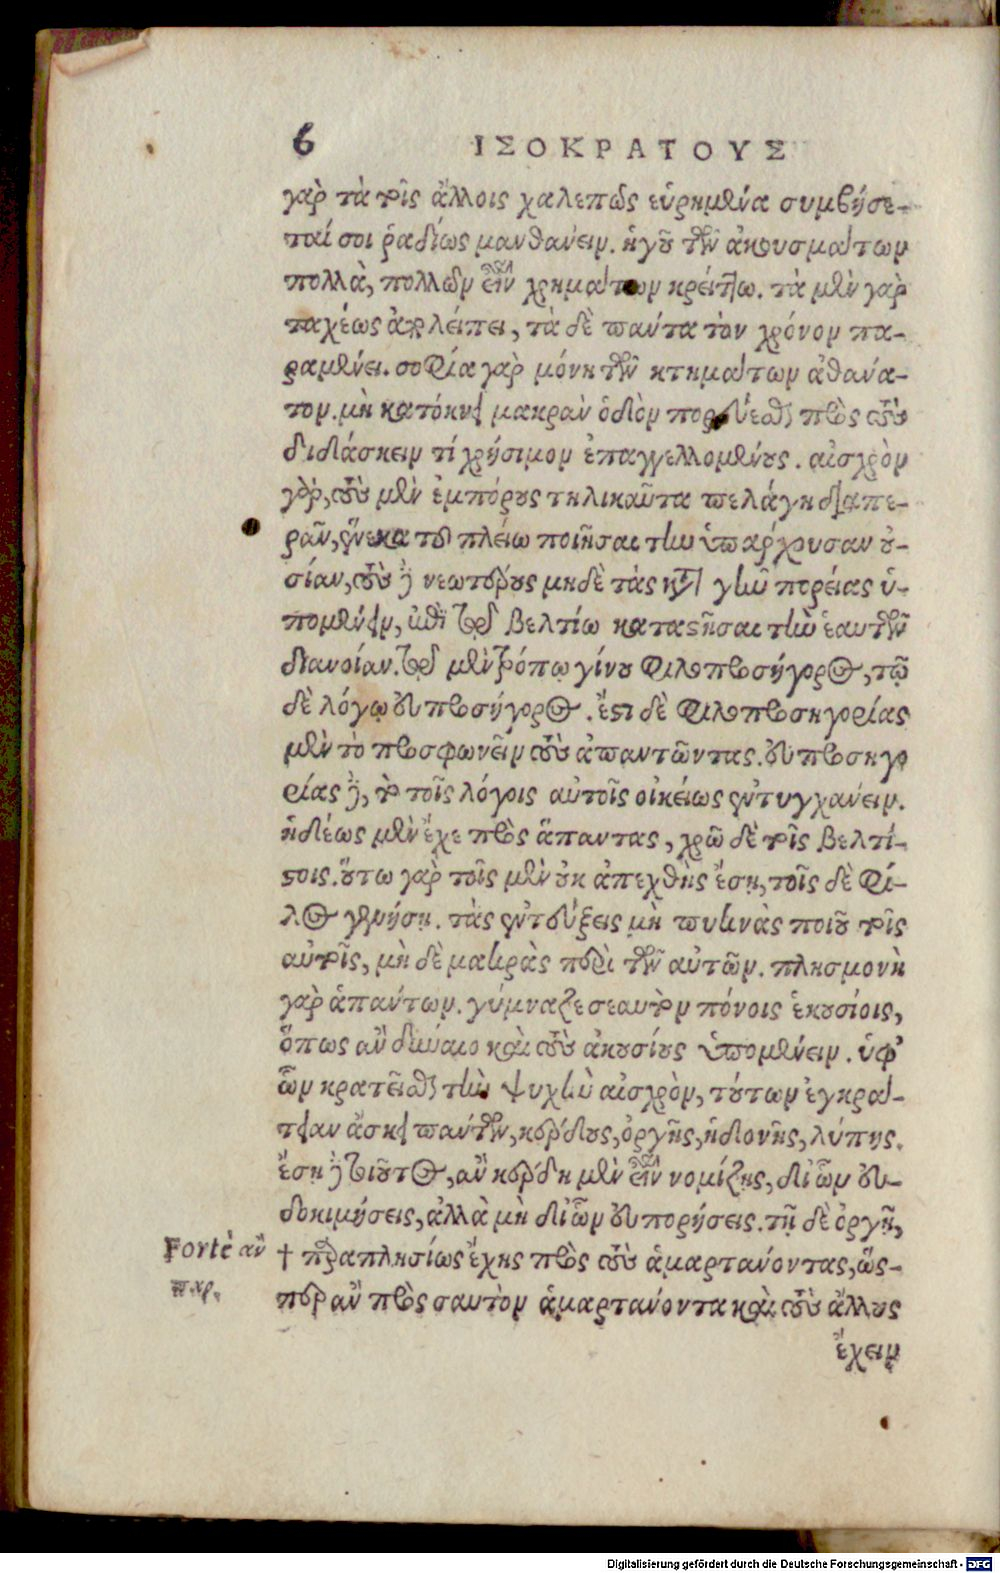 6 ΙΣΟΚΡΑΤΟΥΣ
γὰρ τὰ τοῖς ἄλλοις χαλεπῶς εὑρημένα συμβήσε-
ταί σοι ῥᾳδίως μανθάνειν. ἡγοῦ τῶν ἀκουσμάτων
πολλὰ, πολλῶν εἶναι χρημάτων κρείττω. τὰ μὲν γὰρ
ταχέως ἀπολείπει, τὰ δὲ πάντα τὸν χρόνον πα-
ραμένει. σοφία γὰρ μόνη τῶν κτημάτων ἀθάνα-
τον. μὴ κατόκνει μακρὰν ὁδὸν πορεύεσθαι πρὸς τοὺς
διδάσκειν τί χρήσιμον ἐπαγγελλομένους. αἰσχρὸν
γὰρ, τοὺς μὲν ἐμπόρους τηλικαῦτα πελάγη διαπε-
ρᾶν, ἕνεκα τοῦ πλείω ποιῆσαι τὴν ὑπάρχουσαν οὐ-
σίαν, τοὺς δὲ νεωτέρους μηδὲ τὰς κατὰ γῆν πορείας ὑ-
πομένειν, ἐπὶ τῷ βελτίω καταστῆσαι τὴν ἑαυτῶν
διανοίαν. τῷ μὲν τρόπῳ γίνου φιλοπροσήγορος, τῷ
δὲ λόγῳ εὐπροσήγορος. ἔστι δὲ φιλοπροσηγορίας
μὲν τὸ προσφωνεῖν τοὺς ἀπαντῶντας. εὐπροσηγο
ρίας δὲ, τὸ τοῖς λόγοις αὐτοῖς οἰκείως ἐντυγχάνειν.
ἡδέως μὲν ἔχε πρὸς ἅπαντας, χρῶ δὲ τοῖς βελτί-
στοις. οὕτω γὰρ τοῖς μὲν οὐκ ἀπεχθὴς ἔσῃ, τοῖς δὲ φί-
λος γενήσῃ. τὰς ἐντεύξεις μὴ πυκνὰς ποιοῦ τοῖς
αὐτοῖς, μὴ δὲ μακρὰς περὶ τῶν αὐτῶν. πλησμονὴ
γὰρ ἁπάντων. γύμναζε σεαυτὸν πόνοις ἑκουσίοις,
ὅπως ἂν δύναιο καὶ τοὺς ἀκουσίους ὑπομένειν. ὑφ’
ὧν κρατεῖσθαι τὴν ψυχὴν αἰσχρὸν, τούτων ἐγκρά-
τειαν ἄσκει πάντων, κέρδους, ὀργῆς, ἡδονῆς, λύπης.
ἔσῃ δὲ τοιοῦτος, ἂν κέρδη μὲν εἶναι νομίζῃς, δι’ ὧν εὐ-
δοκιμήσεις, ἀλλὰ μὴ δι’ ὧν εὐπορήσεις. τῇ δὲ ὀργῇ,
Fortè ἂν † παραπλησίως ἔχῃς πρὸς τοὺς ἁμαρτάνοντας, ὥς-
περ ἂν πρὸς σαυτὸν ἁμαρτάνοντα καὶ τοὺς ἄλλους
ἔχειν
Digitalisierung gefördert durch die Deutsche Forschungsgemeinschaft - DFG